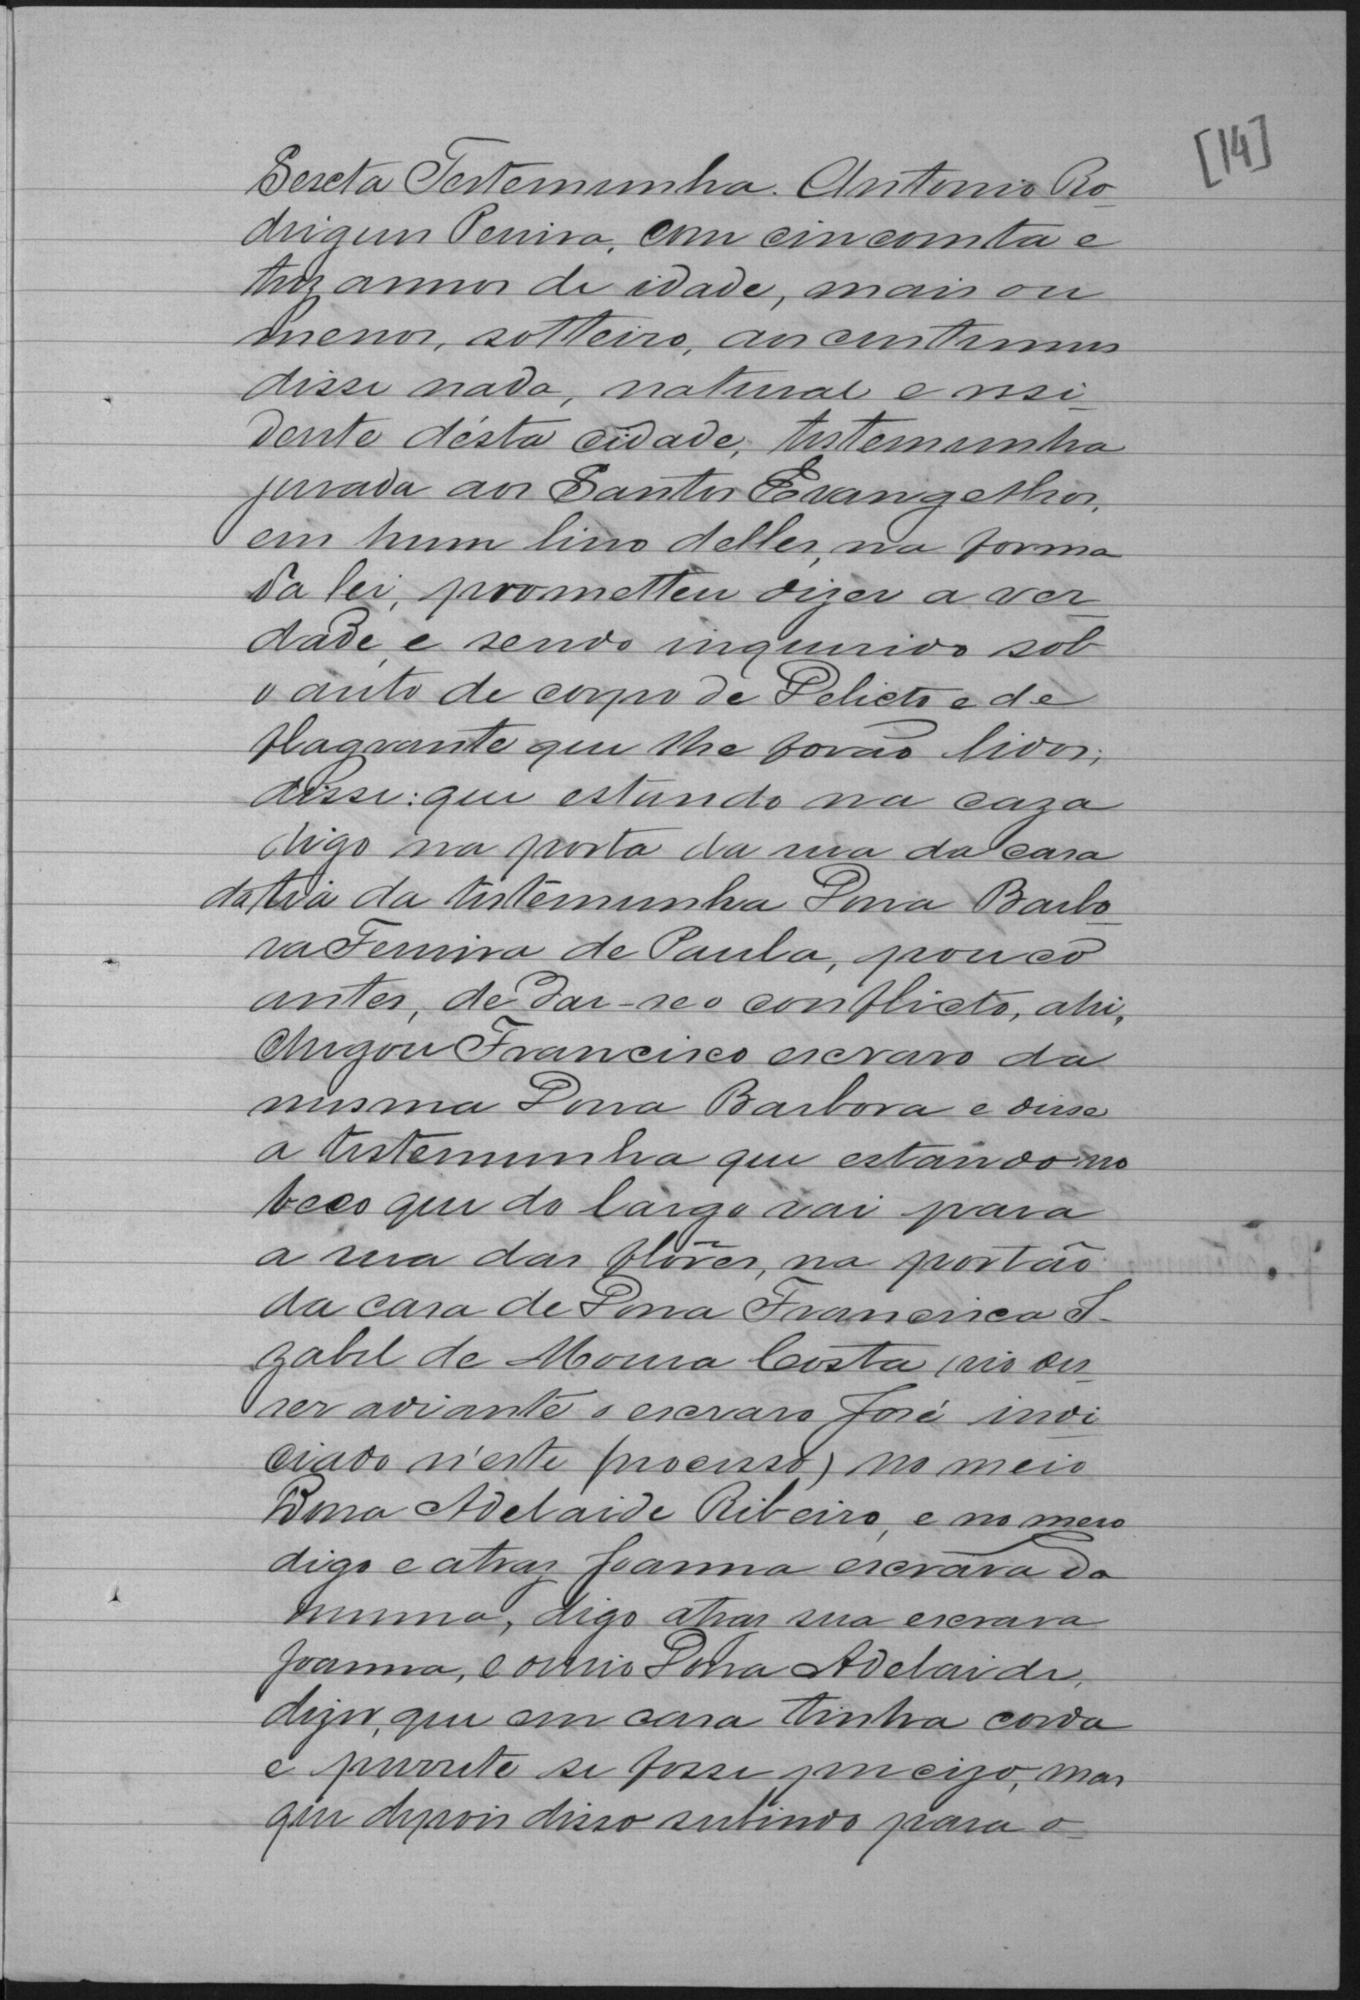 [14]
Sexta Testemunha. Antonio Ro-
drigues Pereira, com cincoenta e
trez annos de idade, mais ou
menos, solteiro, aos custumes
disse nada, natural e resi-
dente désta cidade, testemunha
jurada aos Santos Evangelhos,
em hum livro delles, na forma
da lei, prometteu dizer a ver-
dade, e sendo inquirido sob
o auto de corpo de Delicto e de
flagrante que lhe forão lidos;
disse: que estando na caza
digo na porta da rua da casa
da tia da testemunha Dona Barbo-
ra Ferreira de Paula, pouco
antes, de dar-se o conflicto, ahi,
chegou Francisco escravo da
mesma Dona Barbora e disse
a testemunha que estando no
beco que do largo vai para
a rua das flôres, no portão
da casa de Dona Francisca I-
zabel de Moura Costa, vio des-
cer adiante o escravo José indi-
ciado n'este processo) no meio
Dona Adelaide Ribeiro, e no meio
digo e atraz Joanna escrava da
mesma, digo atras sua escrava
Joanna, e ouvio Dona Adelaide,
dizer, que em casa tinha corda
e porrete se fosse precizo, mas
que depois disso subindo para o